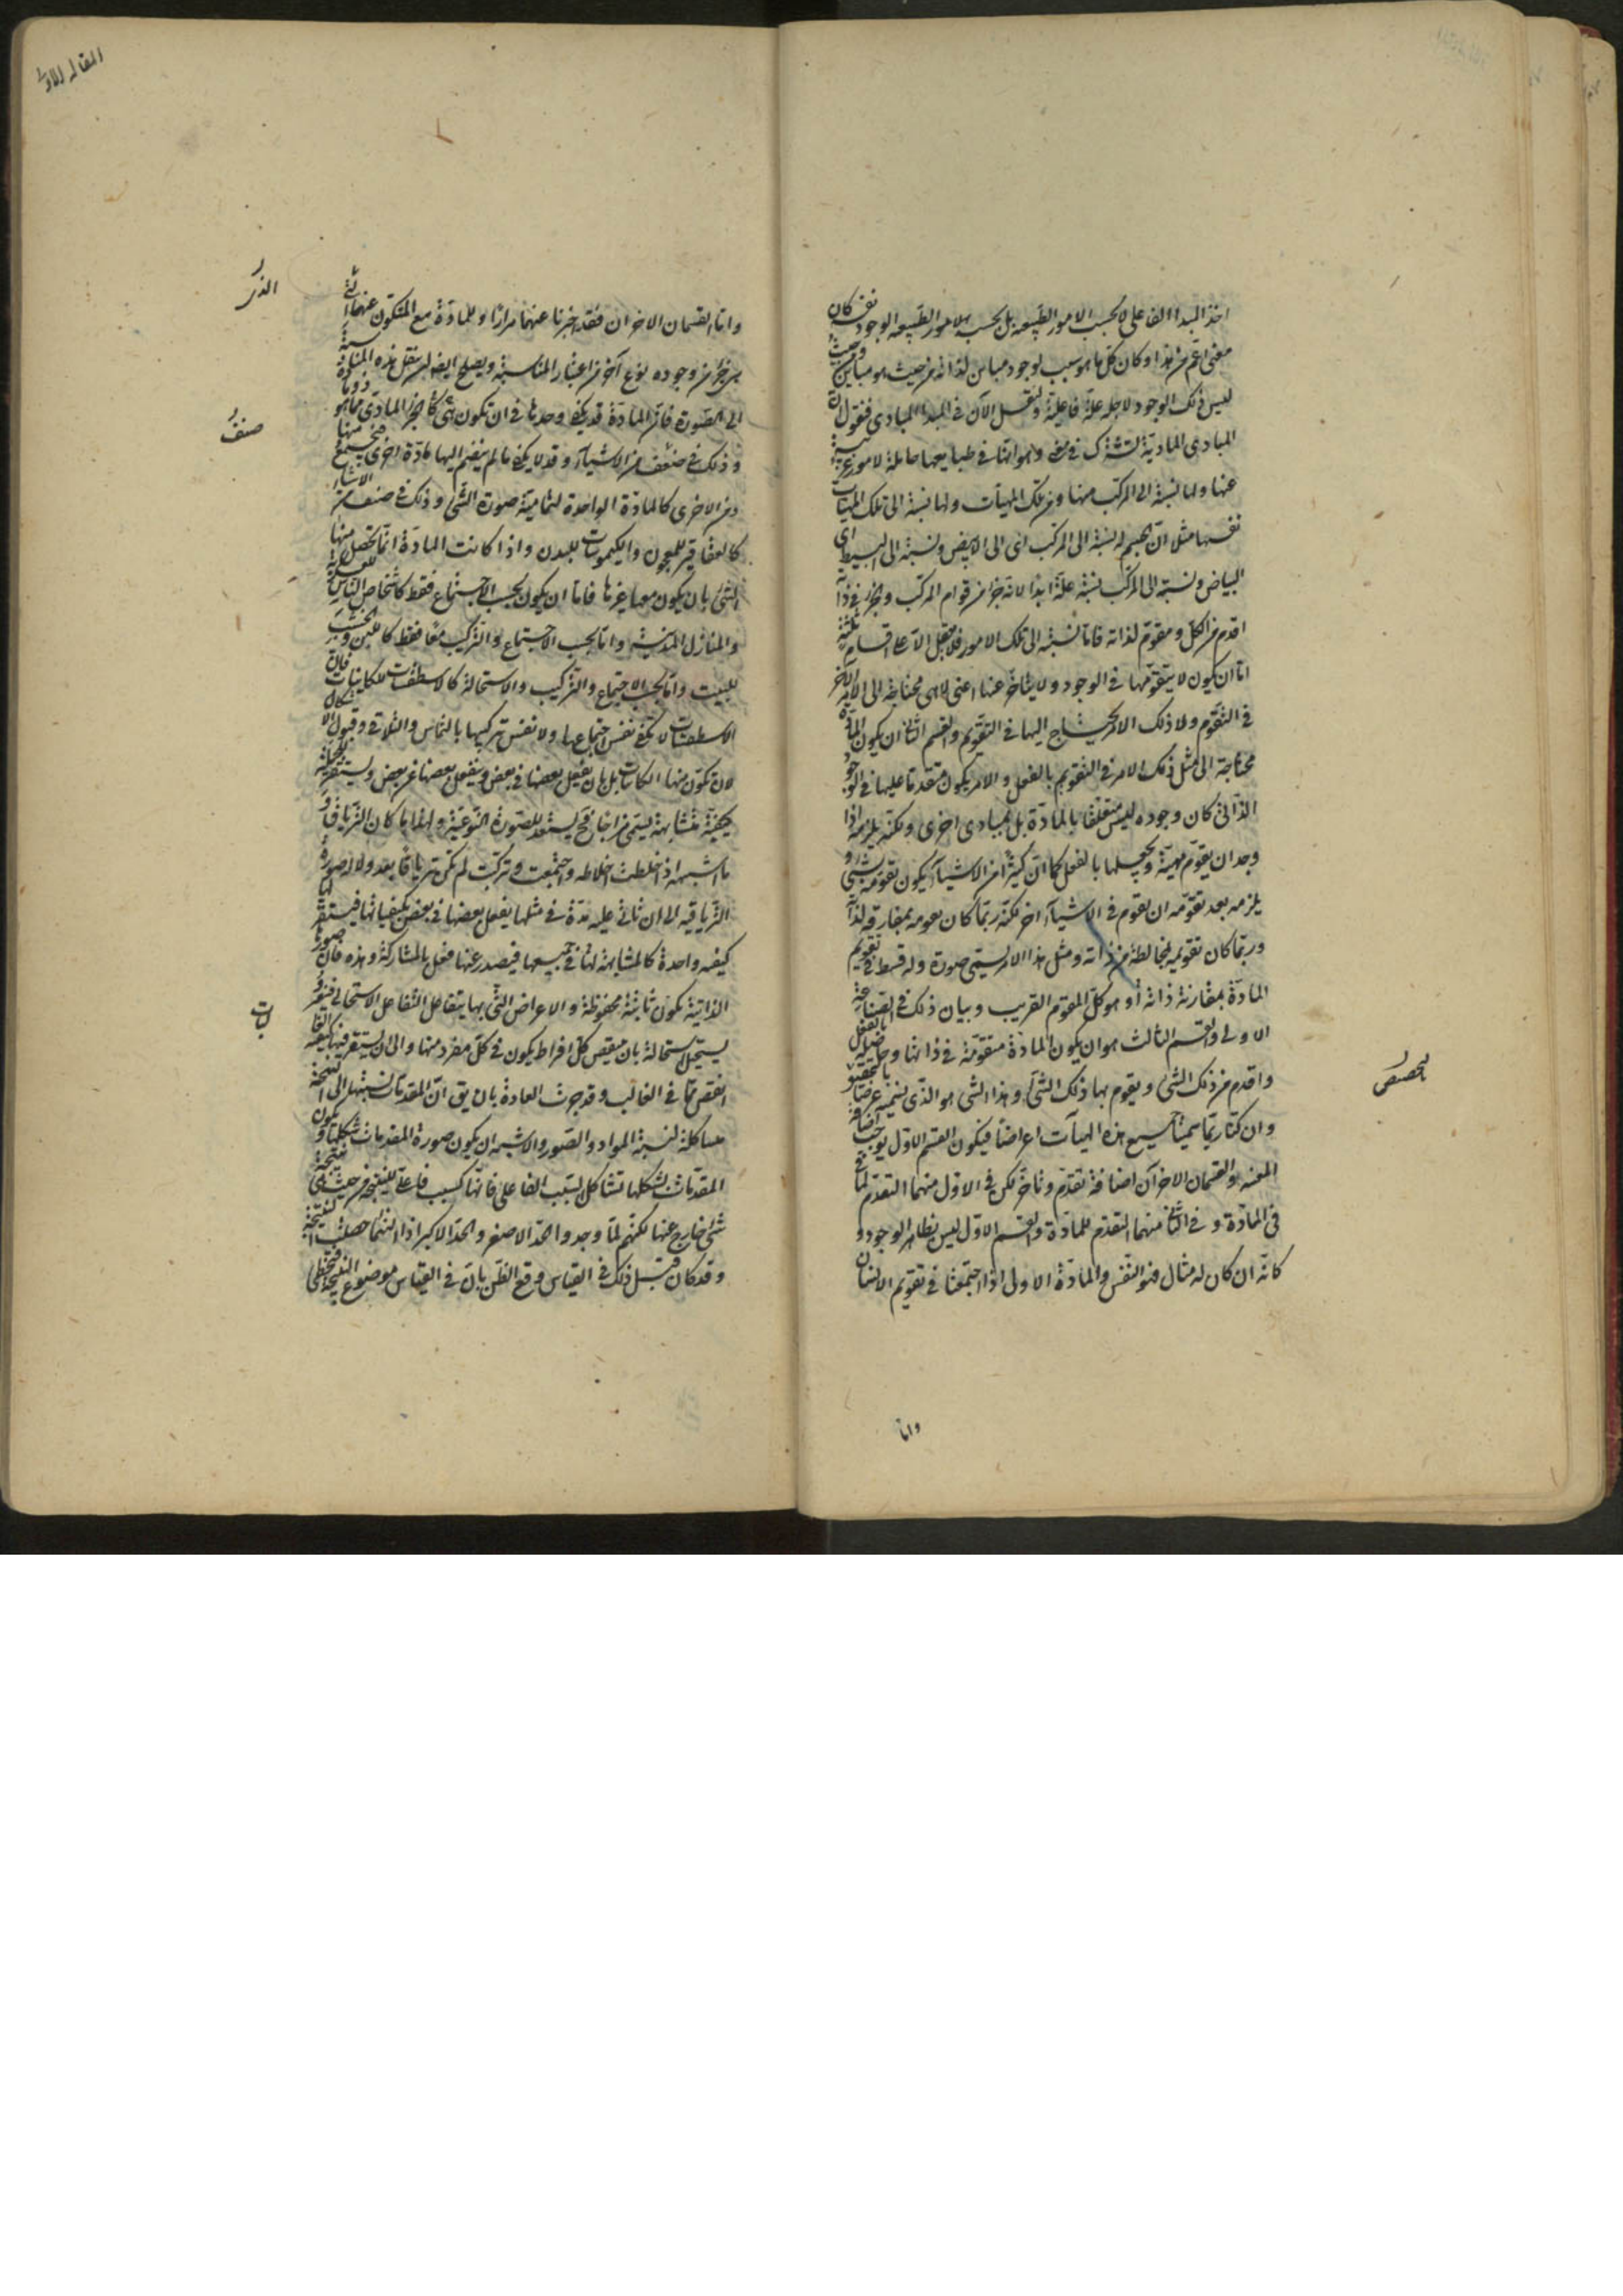 اخذ المبدأ الفاعلى لا بحسب الامور الطبيعه بل بحسب الوجود نفسه كان
معنى اعم من هذا و كان كل ما هو سبب لوجود مباين لذاته من حيث هو مباين و من حيث
ليس ذلك الوجود لاجله علة فاعلية و لنقل الآن فى المبدأ المبادى فنقول ان
المبادى المادية تشترك فى معنى و هو انها فى طبايعها حاملة لامور غريبة
عنها و لها نسبة الى المركب منها و من تلك الهيآت و لها نسبة الى تلك الهيآت
نفسها مثلا ان الجسم له نسبة الى المركب اى الى الابيض و نسبة الى البسيط اى
البياض و نسبته الى المركب نسبة علة ابدا لانه جزء من قوام المركب و الجزء فى ذاته
اقدم من الكل و مقوم لذاته فاما نسبته الى تلك الامور فلا تعقل الا على اقسام ثلثة
اما ان يكون لا يتقدمها فى الوجود و لا يتاخر عنها اعنى لا هى محتاجة الى الامر الآخر
فى التقوم و لا ذلك الامر يحتاج اليها فى التقوم و القسم الثانى ان يكون المادة
محتاجة الى مثل ذلك الامر فى التقويم بالفعل و الامر يكون متقدما عليها فى الوجود
الذاتى كان وجوده ليس متعلقا بالمادة بل بمبادى اخرى و لكنه يلزمه اذا
وجد ان يقوم مهيته و يجعلها بالفعل كما ان كثيرا من الاشياء يكون تقومه بشىء و
يلزمه بعد تقومه ان يقوم فى الاشياء اخر لكنه ربما كان تقومه بمفارقة لذاته
و ربما كان تقويمه لمخالطة من ذاته و مثل هذا الامر يسمى صورة و له قسط فى تقويم
المادة بمقارنة ذاته او هو كل المقوم القريب و بيان ذلك فى الصناعة
الاولى و القسم الثالث هو ان يكون المادة متقومة فى ذاتها و حاصلة بالفعل
و اقدم من ذلك الشىء و يقوم بها ذلك الشىء و هذا الشىء هو الذى نسميه عرضا بالتحقيق
و ان كنا ربما سمينا جميع هذه الهيآت اعراضا فيكون القسم الاول يوجب اضافة
المعية و القسمان الاخرآن اضافة تقدم و تاخر لكن فى الاول منهما التقدم لما فى
فى المادة و فى الثانى منهما التقدم للمادة و القسم الاول ليس بظاهر الوجود و
كانه ان كان له مثال فهو النفس و المادة الاولى اذا اجتمعتا فى تقويم الانسان
واما
المقاله الاولى
و اما القسمان الاخران فقد اخبرنا عنهما مرارا و للمادة مع المتكون عنها التى
هى جزء من وجوده نوع آخر من اعتبار المناسبة و يصلح ايضا ان ينقل هذه المناسبة
الى الصورة فان المادة قد يكفى وحدها فى ان تكون هى الجزء المادى لما هو ذو مادة
و ذلك فى صنف من الاشياء و قد لا يكفى ما لم ينضم اليها مادة اخرى فتجتمع منها
و من الاخرى كالمادة الواحدة لتمامية صورة الشىء و ذلك فى صنف من الاشياء
كالعقاقير للمعجون و الكيموسات للبدن و اذا كانت المادة انما تحصل منها
الشىء بان يكون معها غيرها فاما ان يكون بحسب الاجتماع فقط كاشخاص الناس للعسكرية
و المنازل للمدينة و اما بحسب الاجتماع و التركيب معا فقط كاللبن و الخشب
للبيت و اما بحسب الاجتماع و التركيب و الاستحالة كالاسطقسات للكاينات فان
الاسطقسات لا يكفى نفس اجتماعها و لا نفس تركيبها بالتماس و التلاقى و قبول الاشكال
لان تكون منها الكاينات بل بان يفعل بعضها فى بعض و ينفعل بعضها عن بعض و يستقر للجملة
كيفية متشابهة يسمى مزاجا فح يستعد للصورة النوعية و لهذا ما كان الترياق و
ما اشبهه اذ اخلطت اخلاطه و اجتمعت و تركبت لم تكن ترياقا بعد و لا له صورة
الترياقيه الى ان تاتى عليه مدة فى مثلها يفعل بعضها فى بعض بكيفياتها فيستقر لها
كيفيه واحدة كالمتشابهة لها فى جميعها فيصدر عنها فعل بالمشاركة و هذه فان صورها
الذاتية تكون ثابتة محفوظة و الاعراض التى بها يتفاعل التفاعل الاستحالى فيتغير و
يستحيل استحالة بان ينقص كل افراط يكون فى كل مفرد منها و الى ان يستقر فيها كيفية
انقص مما فى الغالب و قد جرت العادة بان يق ان المقدمات نسبتها الى النتيجة
مشاكلة لنسبة المواد و الصور و الاشبه ان يكون صورة المقدمات شكلها و يكون
المقدمات بشكلها تشاكل السبب الفاعلى فانها كسبب فاعلى للنتيجة من حيث هى نتيجة
شىء خارج عنها لكنهم لما وجدوا الحد الاصغر و الحد الاكبر اذا التئما حصلت النتيجة
و قد كان قبل ذلك فى القياس وقع الظن بان فى القياس موضوع النتيجة فتخطى
صنف